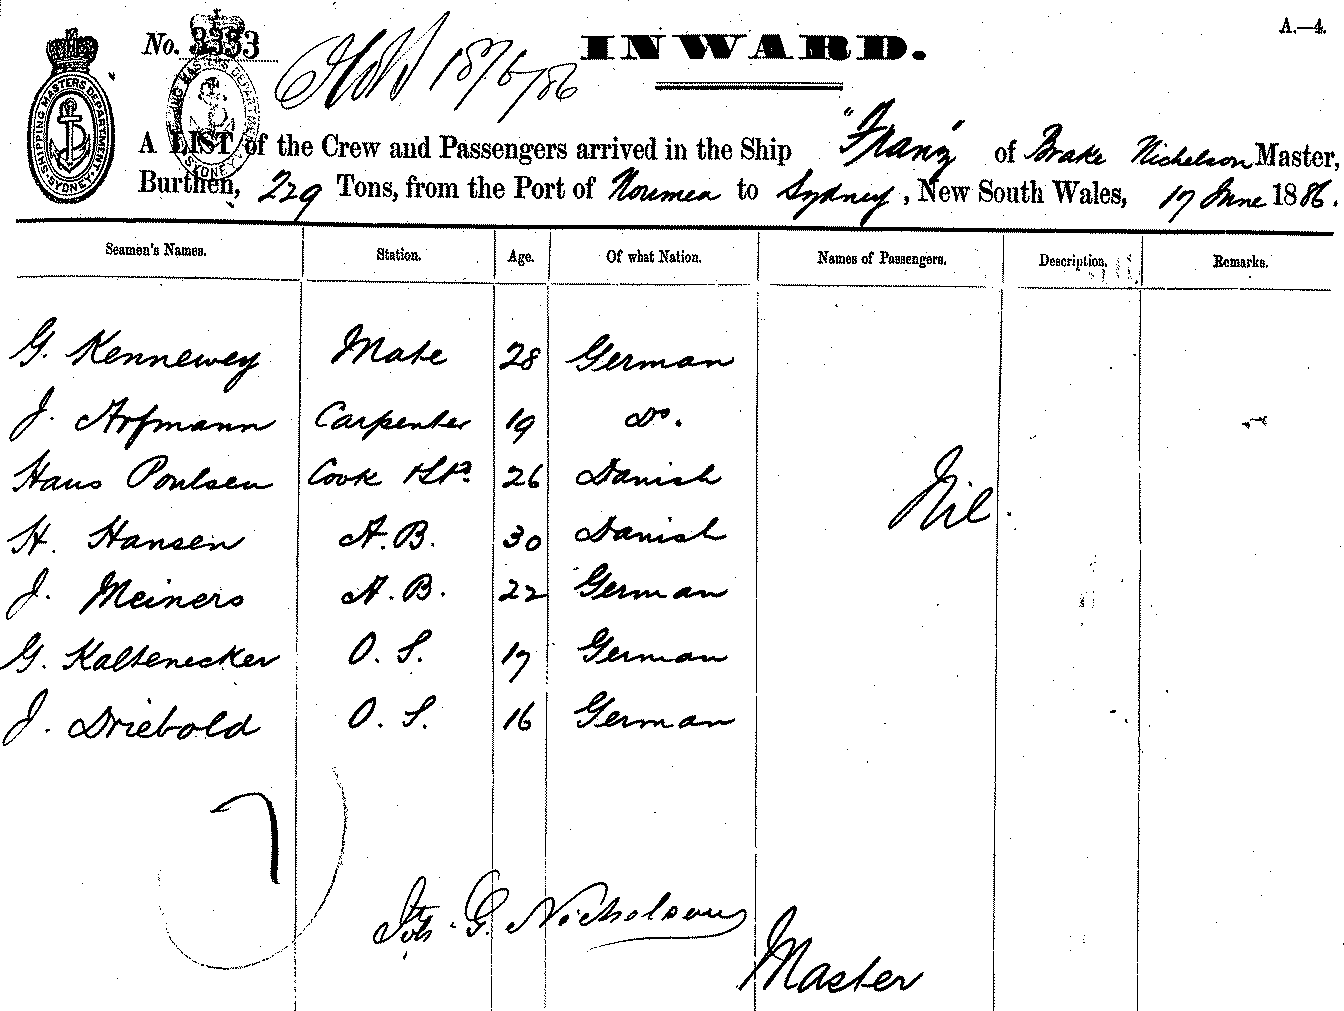 A.—4.
No. 3333
18/6/86
INWARD.
A LIST of the Crew and Passengers arrived in the Ship "Franz" of Brake Nichelson Master,
Burthen, 229 Tons, from the Port of Noumea to Sydney, New South Wales, 17 June 1886.
SHIPPING MASTERS DEPARTMENT
SYDNEY
Seamen's Names. Station. Age. Of what Nation. Names of Passengers. Description. Remarks.
G. Kennewey Mate 28 German
J. Arfmann Carpenter 19 Do.
Hans Poulsen Cook & Std. 26 Danish
Nil.
H. Hansen A.B. 30 Danish
J. Meiners A.B. 22 German
G. Kaltenecker O. S. 17 German
J. Driebold O. S. 16 German
7
Joh. G. Nicholson
Master